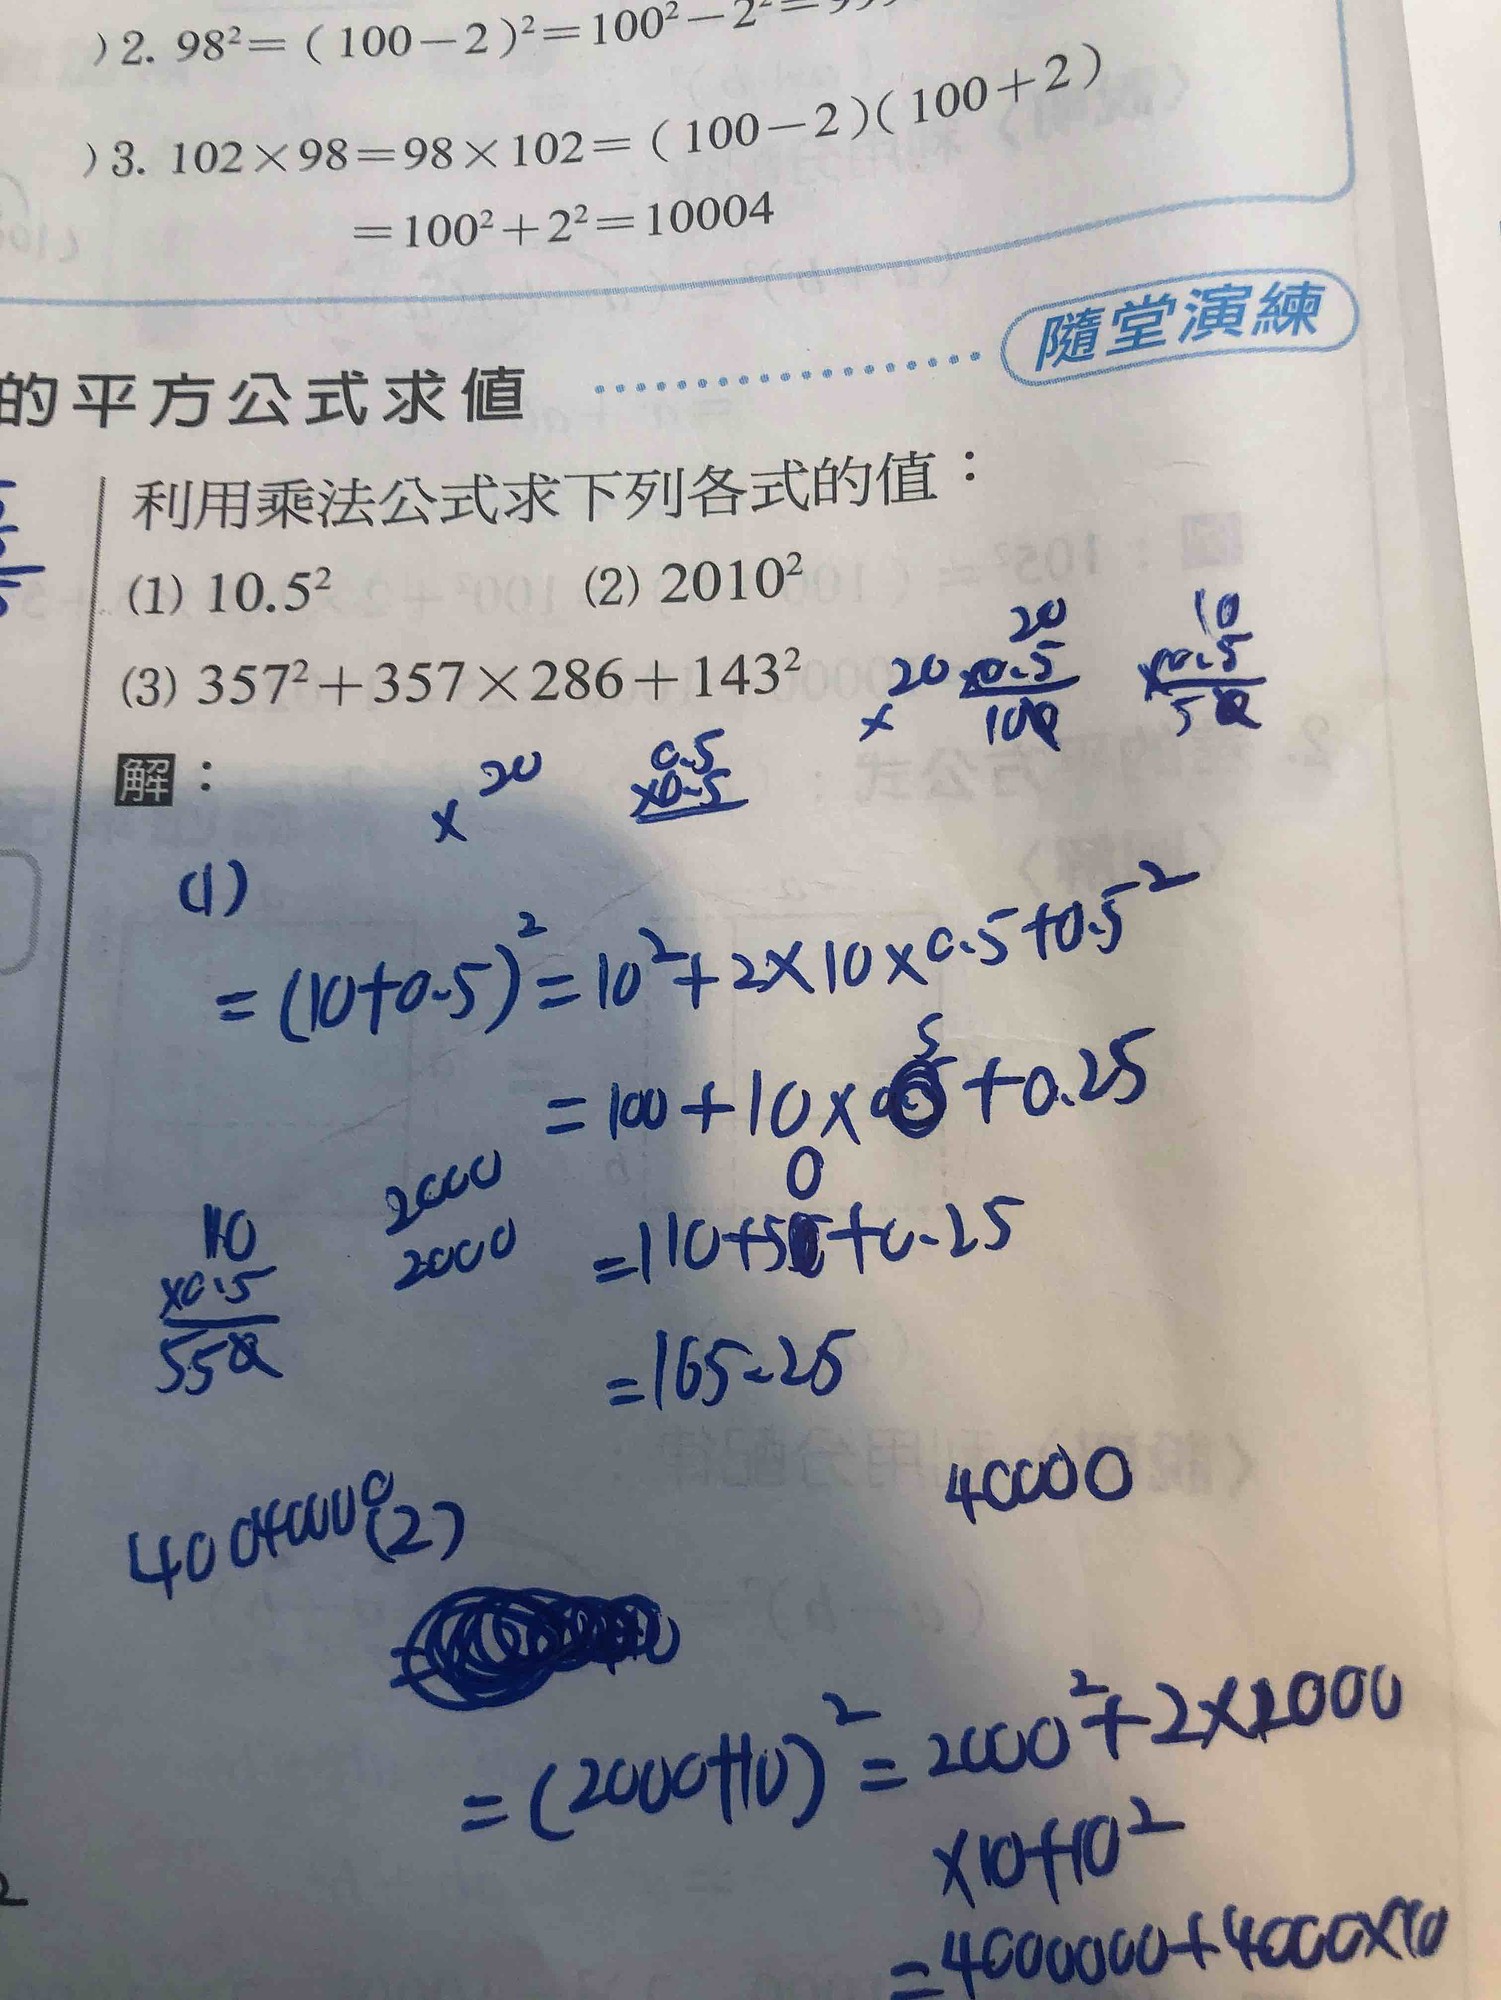 )2. 98²=(100-2)²=100²-2²=
)3. 102×98=98×102=(100-2)(100+2)
=100²+2²=10004
隨堂演練
的平方公式求值
利用乘法公式求下列各式的值：
(1) 10.5² (2) 2010²
(3) 357²+357×286+143²
20
×0.5
100
10
×0.5
50
20
×
解：
×20
0.5
×0.5
(1)
=(10+0.5)²=10²+2×10×0.5+0.5²
=100+10× 5+0.25
=110+50+0.25
=165.25
110
×0.5
550
2000
2000
40000
40040000
(2)
=(2000+10)²=2000²+2×2000
×10+10²
=4000000+4000×10